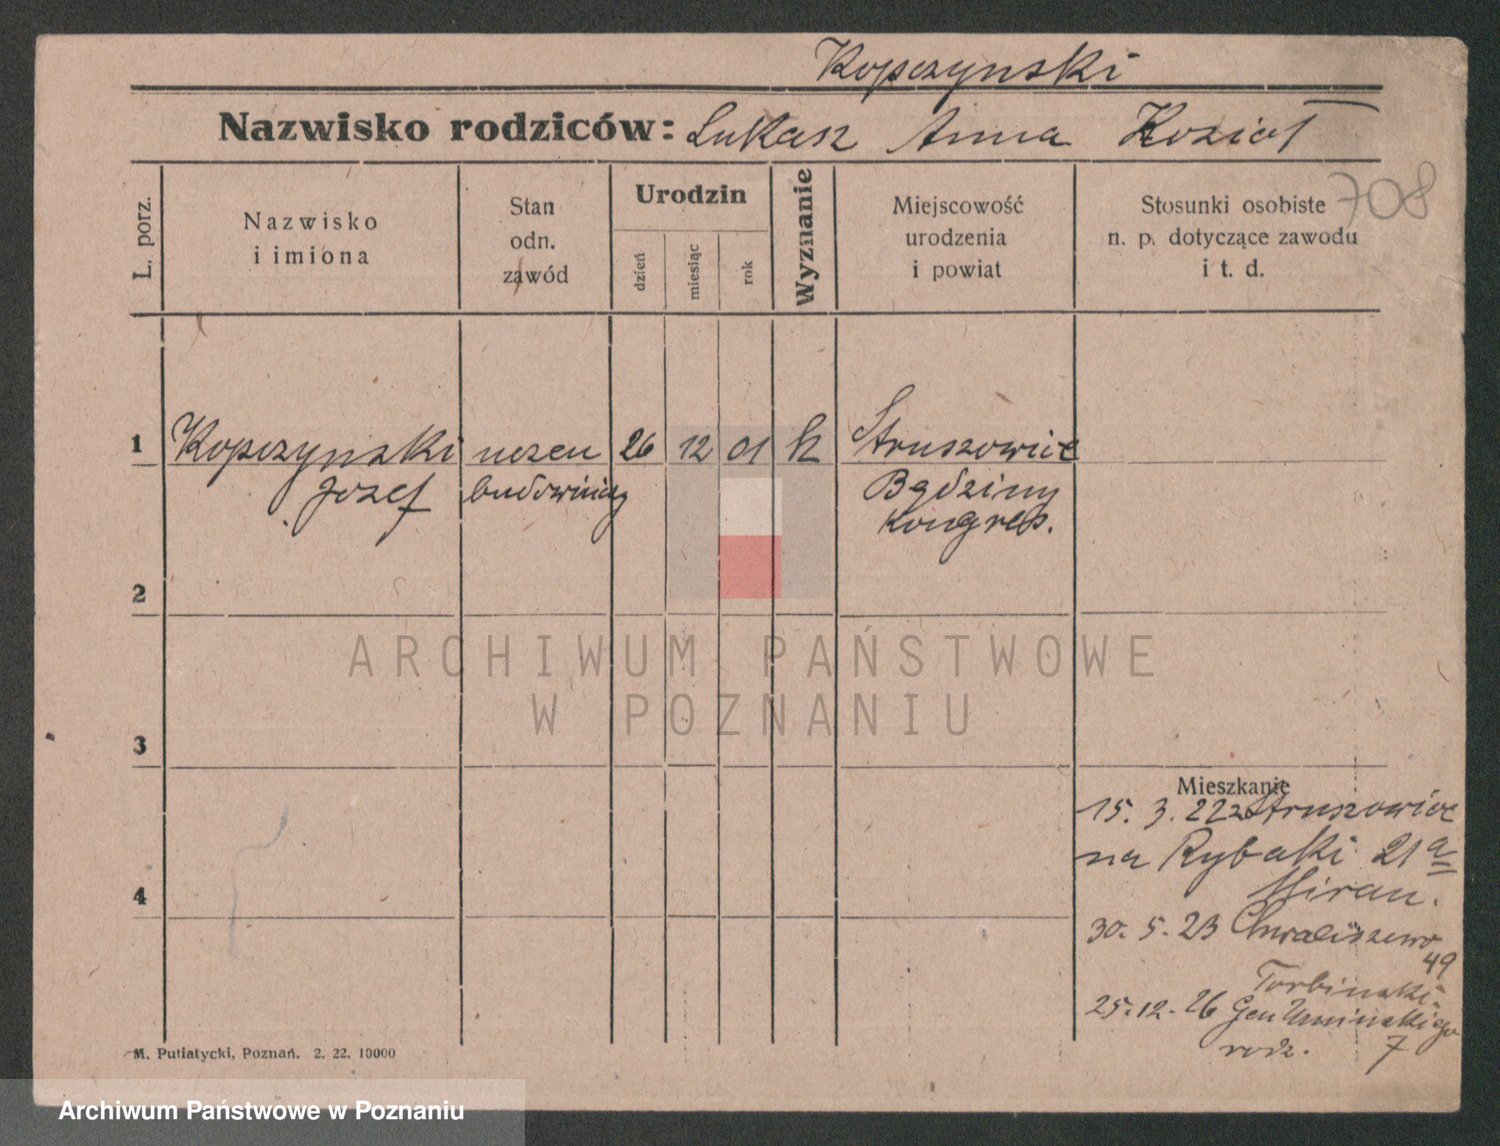 Kopczynski
Nazwisko rodziców: Lukasz Anna Kozioł
708
L. porz.
Nazwisko
i imiona
Stan
odn.
zawód
Urodzin
dzień
miesiąc
rok
Wyznanie
Miejscowość
urodzenia
i powiat
Stosunki osobiste
n. p. dotyczące zawodu
i t. d.
1 Kopczynski uczeń 26 12 01 k Struszowice
Józef budowniczy Bądziny
Kongres.
2
3
4
Mieszkanie
15. 3. 22 z Struszowice
na Rybaki 21 a
Miran.
30. 5. 23 Chwaliszewo
49
Torbinski
25.12.26 Gen Umińskiego
rodz. 7
M. Putiatycki, Poznań. 2. 22. 10000
ARCHIWUM PAŃSTWOWE
W POZNANIU
Archiwum Państwowe w Poznaniu